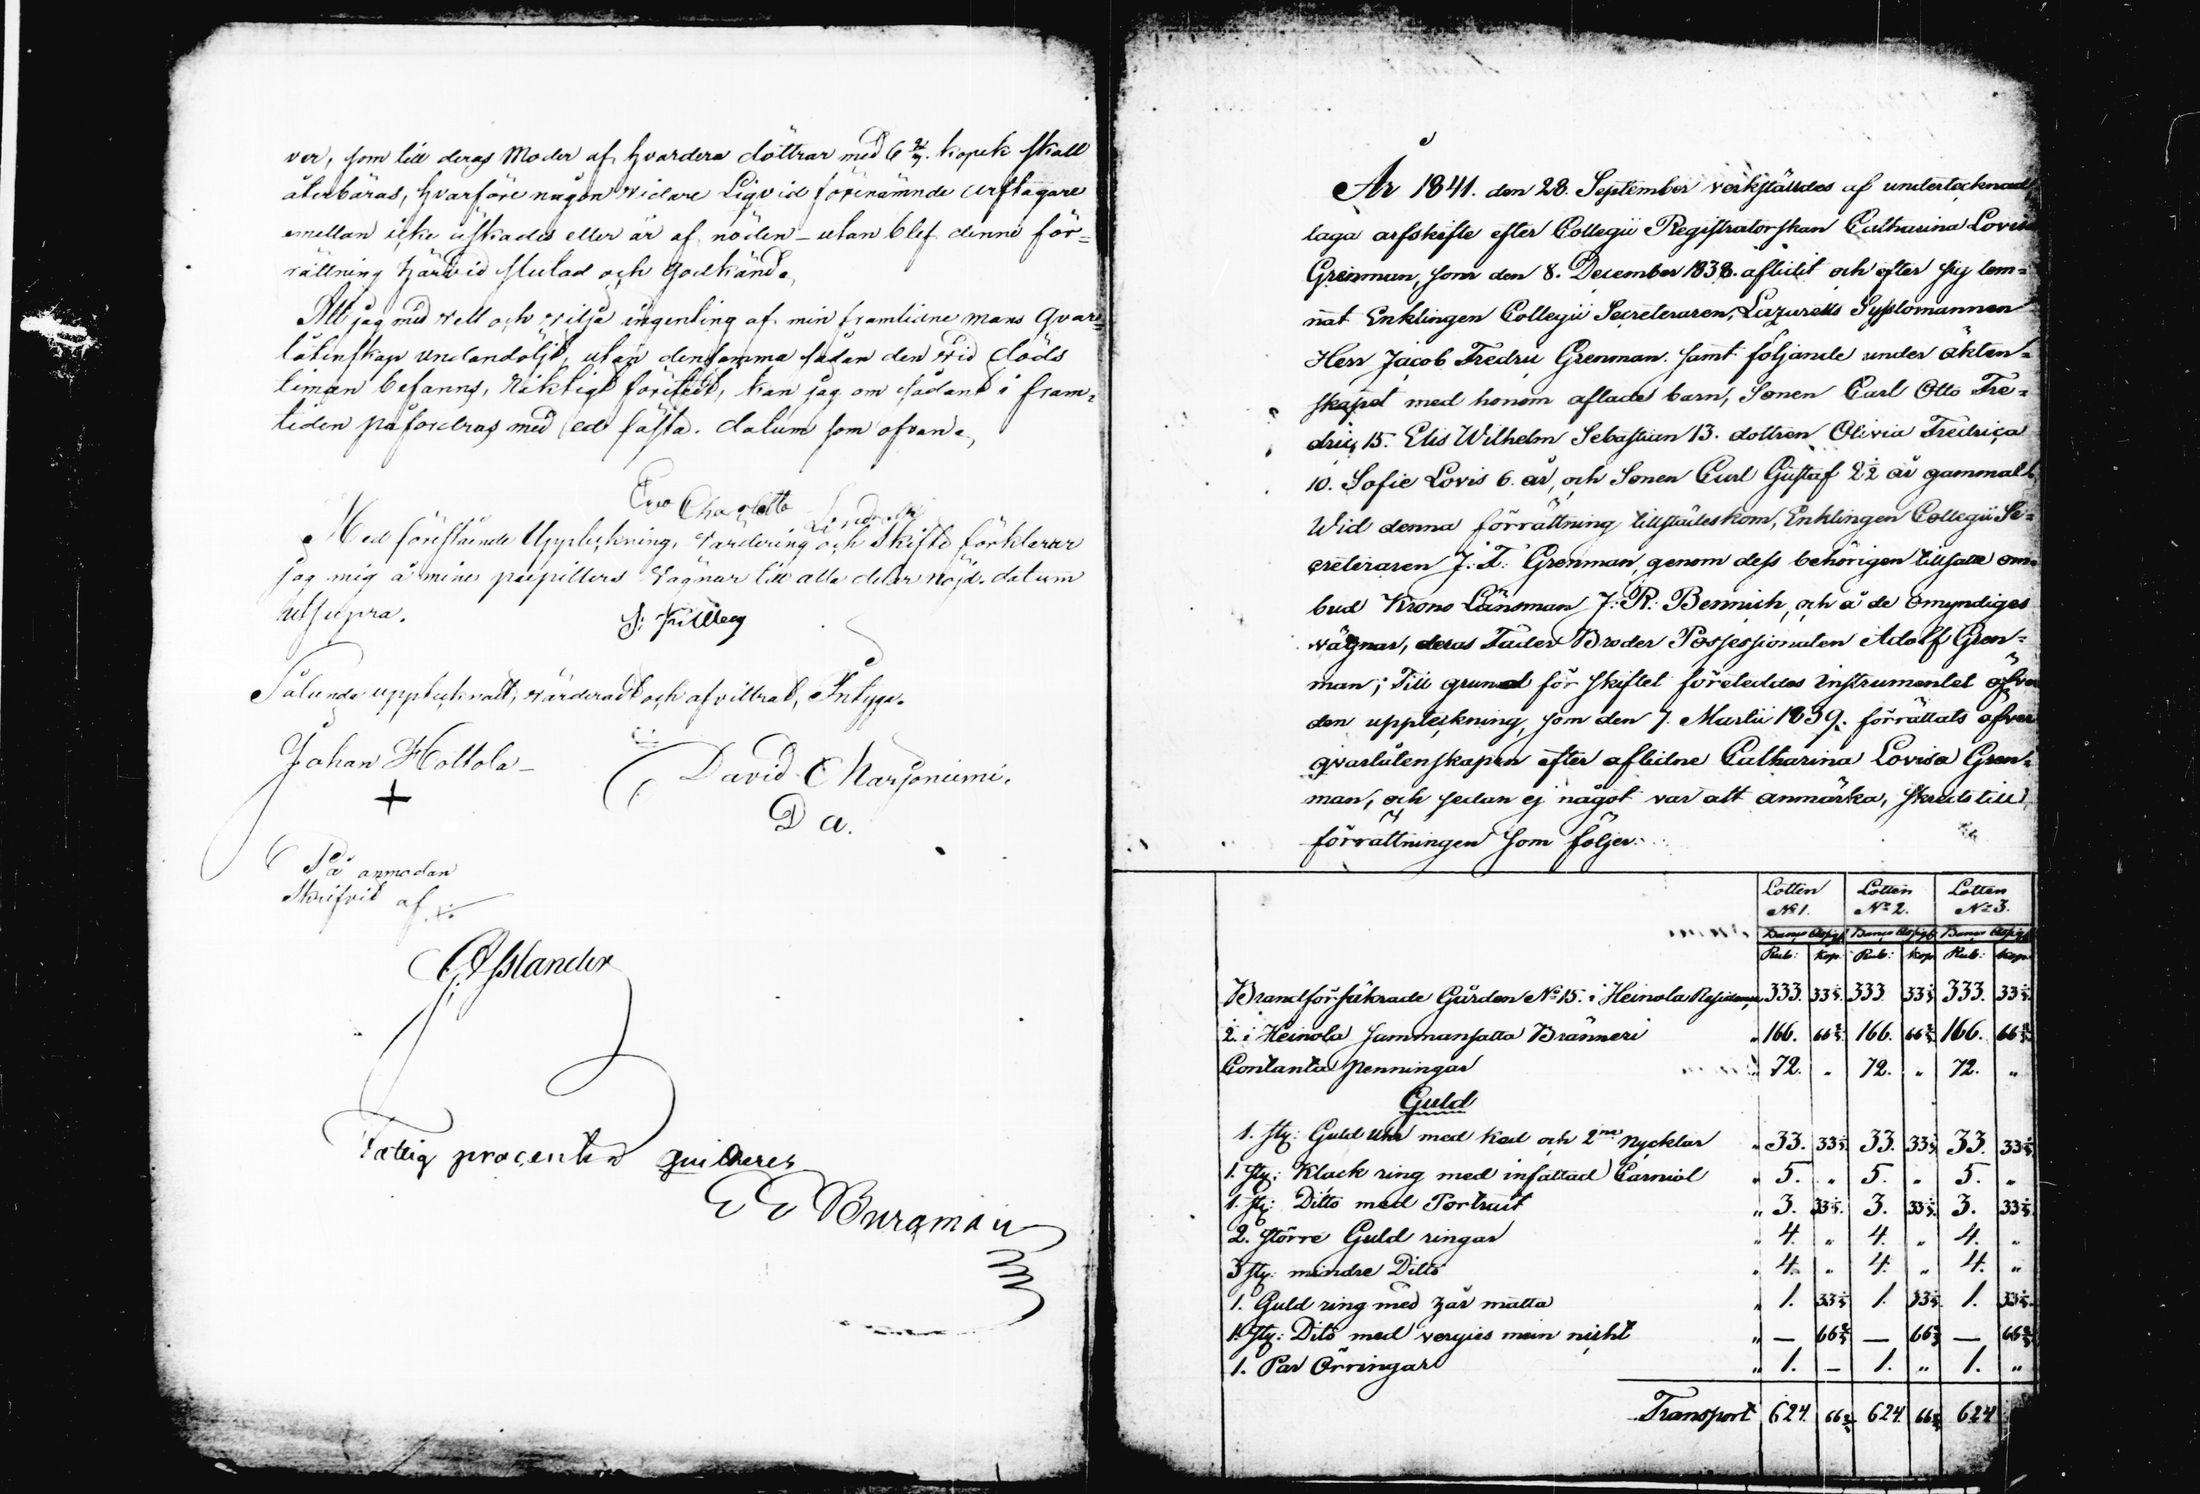 ver, som till deras Moder af hvardera döttrar med 6 2/7. kopek skall
återbäras, hvarföre någon widare Liqvid förenämnde Arftagare
emellan icke äskades eller är af nöden – utan blef denne för=
rättning härwid slutad och godkänd.
Att jag med wett och wilja ingenting af min framlidne mans qvar=
låtenskap undandöljt, utan densamma sådan den wid döds
timan befanns, riktigt förestedt, kan jag om sådant i fram=
tiden påfordras med ed fästa. datum som ofvan.
Eva Charlotta
Med förestående Uppteckning, värdering och Skifte förklarar
jag mig å mine pupillers vägnar till alla delar nöjd. datum
utsupra.
Sålunda upptecknadt, värderadt och afvittrat, Intyga.
Johan Hottola
David Marjoniemi.
+
D A.
På anmodan
Skrifvit af
Fattig procenten quitteres
E E Burgman
År 1841. den 28. September verkställdes af undertecknad
laga arfskifte efter Collegii Registratorskan Catharina Lovisa
Grenman, som den 8. December 1838. aflidit och efter sig lem=
nat Enklingen Collegii Secreteraren, Lazaretts Sysslomannen
Herr Jacob Fredric Grenman. samt följande under äkten=
skapet med honom aflade barn, Sonen Carl Otto Fre=
dric, 15. Elis Wilhelm Sebastian 13. dottren Olivia Fredrica
10. Sofie Lovis 6. år, och Sonen Carl Gustaf 2 1/2 år gammal
Wid denna förrättning tillstädeskom, Enklingen Collegii Se=
creteraren J: F: Grenman, genom dess behörigen tillsatte om=
bud Krono Länsman J: R: Bennich, och å de omyndiges
vägnar, deras Fader Broder Possessionaten Adolf Gren=
man; Till grund för skiftet företeddes instrumentet öfver
den uppteckning, som den 7. Martii 1839. förrättats öfver
qvarlåtenskapen efter aflidne Catharina Lovisa Gren=
man, och sedan ej något var att anmärka, skreds till
förrättningen som följer:
Lotten No 1. Lotten No 2. Lotten No 3.
Rub: Kop. Rub: Kop. Rub: Kop.
Brandförsäkrade Gården No 15. i Heinola 333. 33 1/3. 333 33 1/3 333. 33 1/3.
2. i Heinola sammansatta Bränneri " 166. 66 2/3. 166. 66 2/3. 166. 66 2/3.
Contanta penningar " 72. " 72. " 72. "
Guld
1. st: Guld Uhr med Ked och 2ne Nycklar " 33. 33 1/3. 33. 33 1/3. 33 33 1/3
1. st: Klack ring med infattad Carniol " 5. " 5. " 5. "
1. st: Ditto med Portrait " 3. 33 1/3. 3. 33 1/3. 3. 33 1/3.
2. större Guld ringar " 4. " 4. " 4. "
3 st: mindre Ditto " 4. " 4. " 4. "
1. Guld ring med hår matta " 1. 33 1/3 1. 33 1/3. 1. 33 1/3.
1. st: Dito med vergies mein nicht " — 66 2/3 — 66 2/3 — 66 2/3
1. Par Örringar " 1. — 1. " 1. "
Transport 624. 66 2/3 624. 66 2/3 624